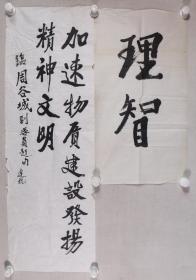 理智
加速物質建設發揚
精神文明
臨周谷城副委員